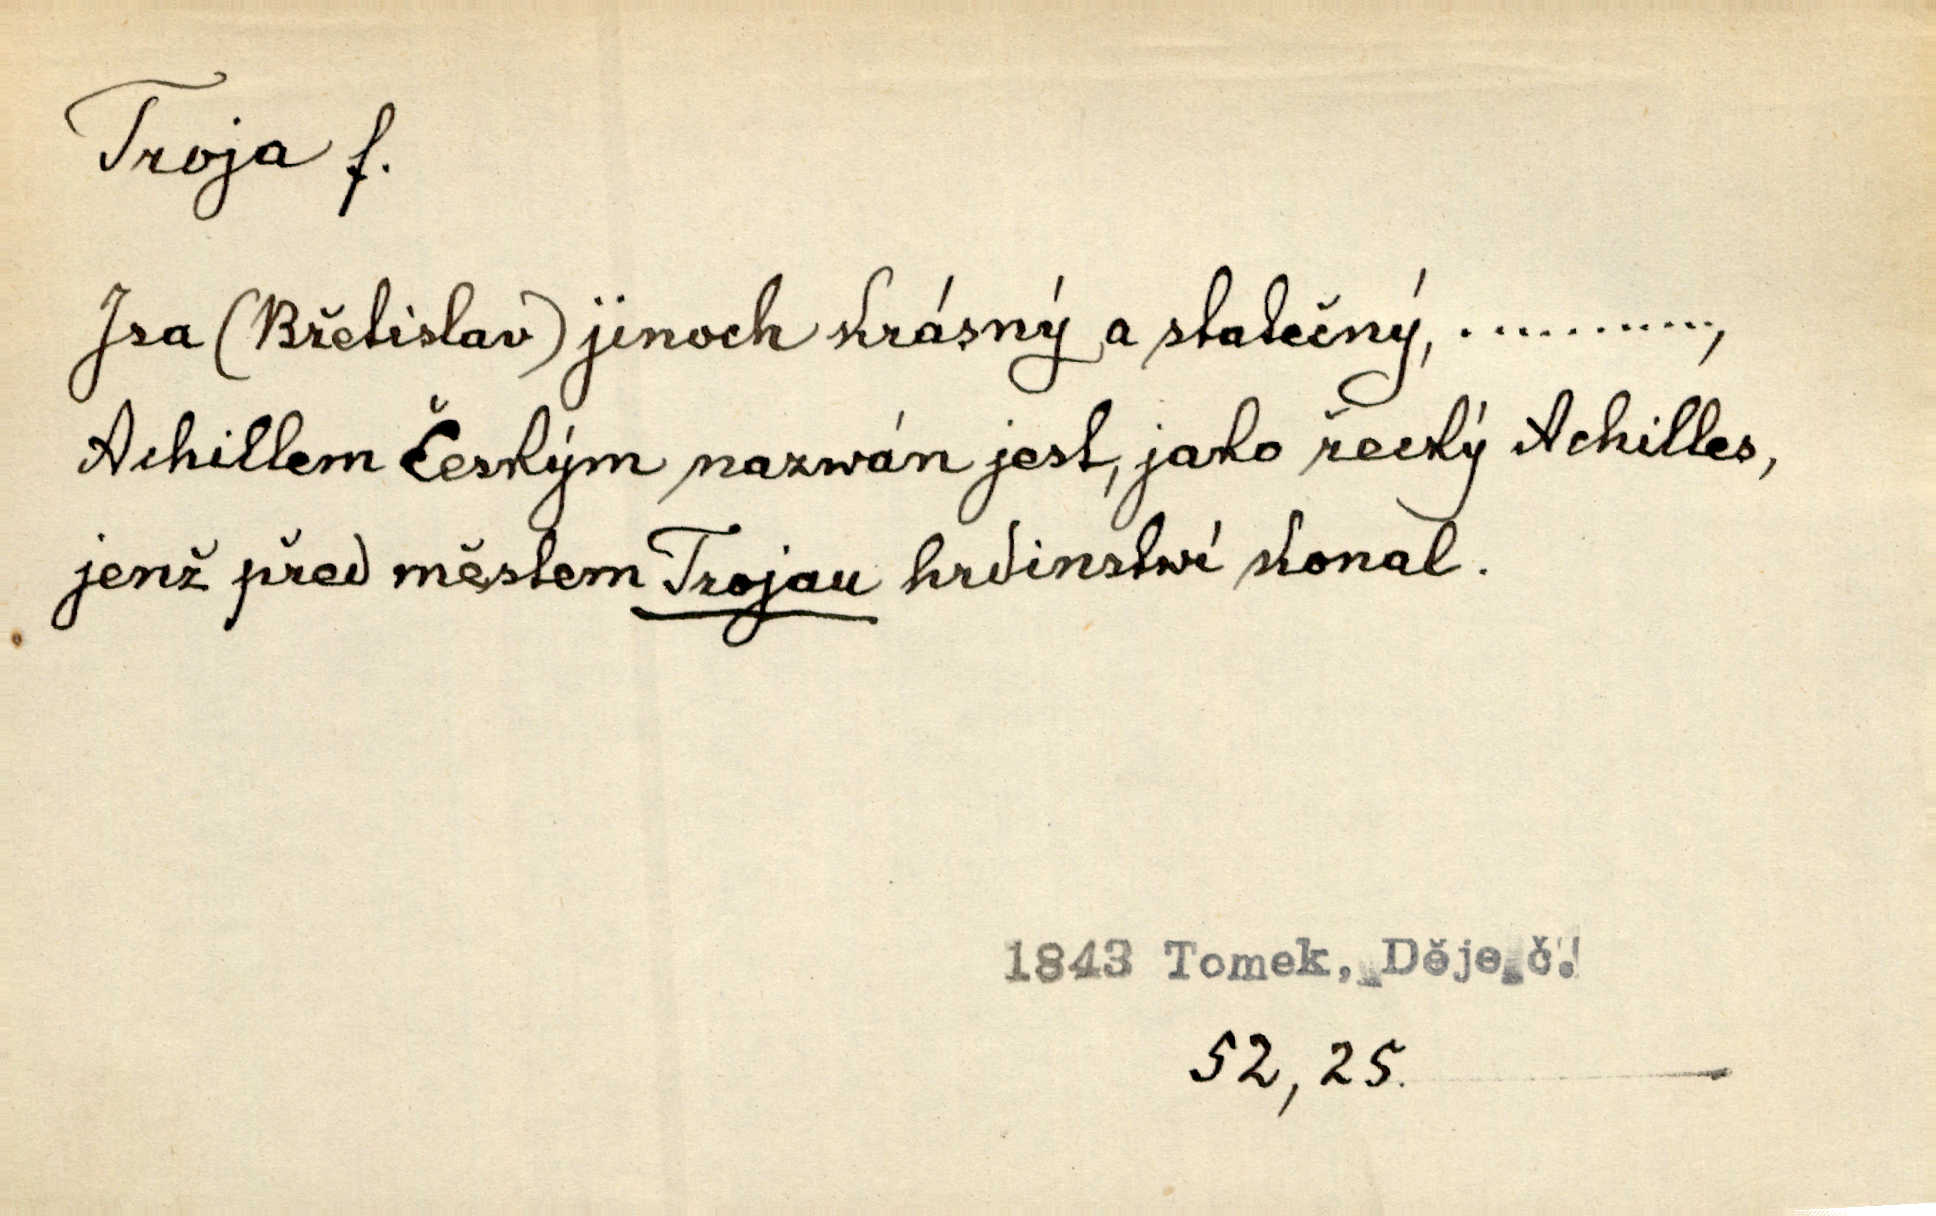 Troja f.
Jsa (Břetislav) jinoch krásný a statečný, ............,
Achillem Českým nazwán jest, jako řecký Achilles,
jenž před městem Trojau hrdinstwí konal.
1843 Tomek, Děje č.
52, 25.